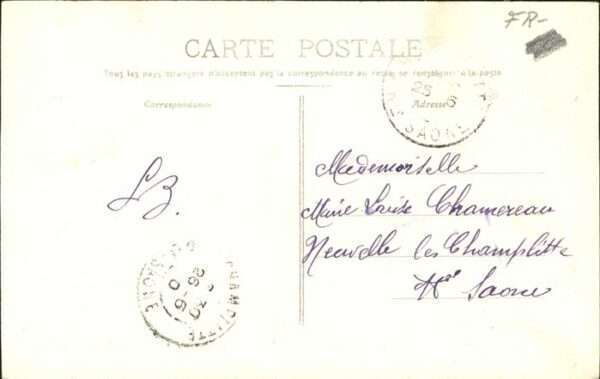 FR-
CARTE POSTALE
Tous les pays étrangers n'acceptent pas la correspondance au recto, se renseigner à la poste
Correspondance
Adresse
25 6
SAONE
LB.
Mademoiselle
Marie Louise Chamereau
Neuvelle les Champlitte
Hte Saone
CHAMPLITTE
26-6
HTE SAONE